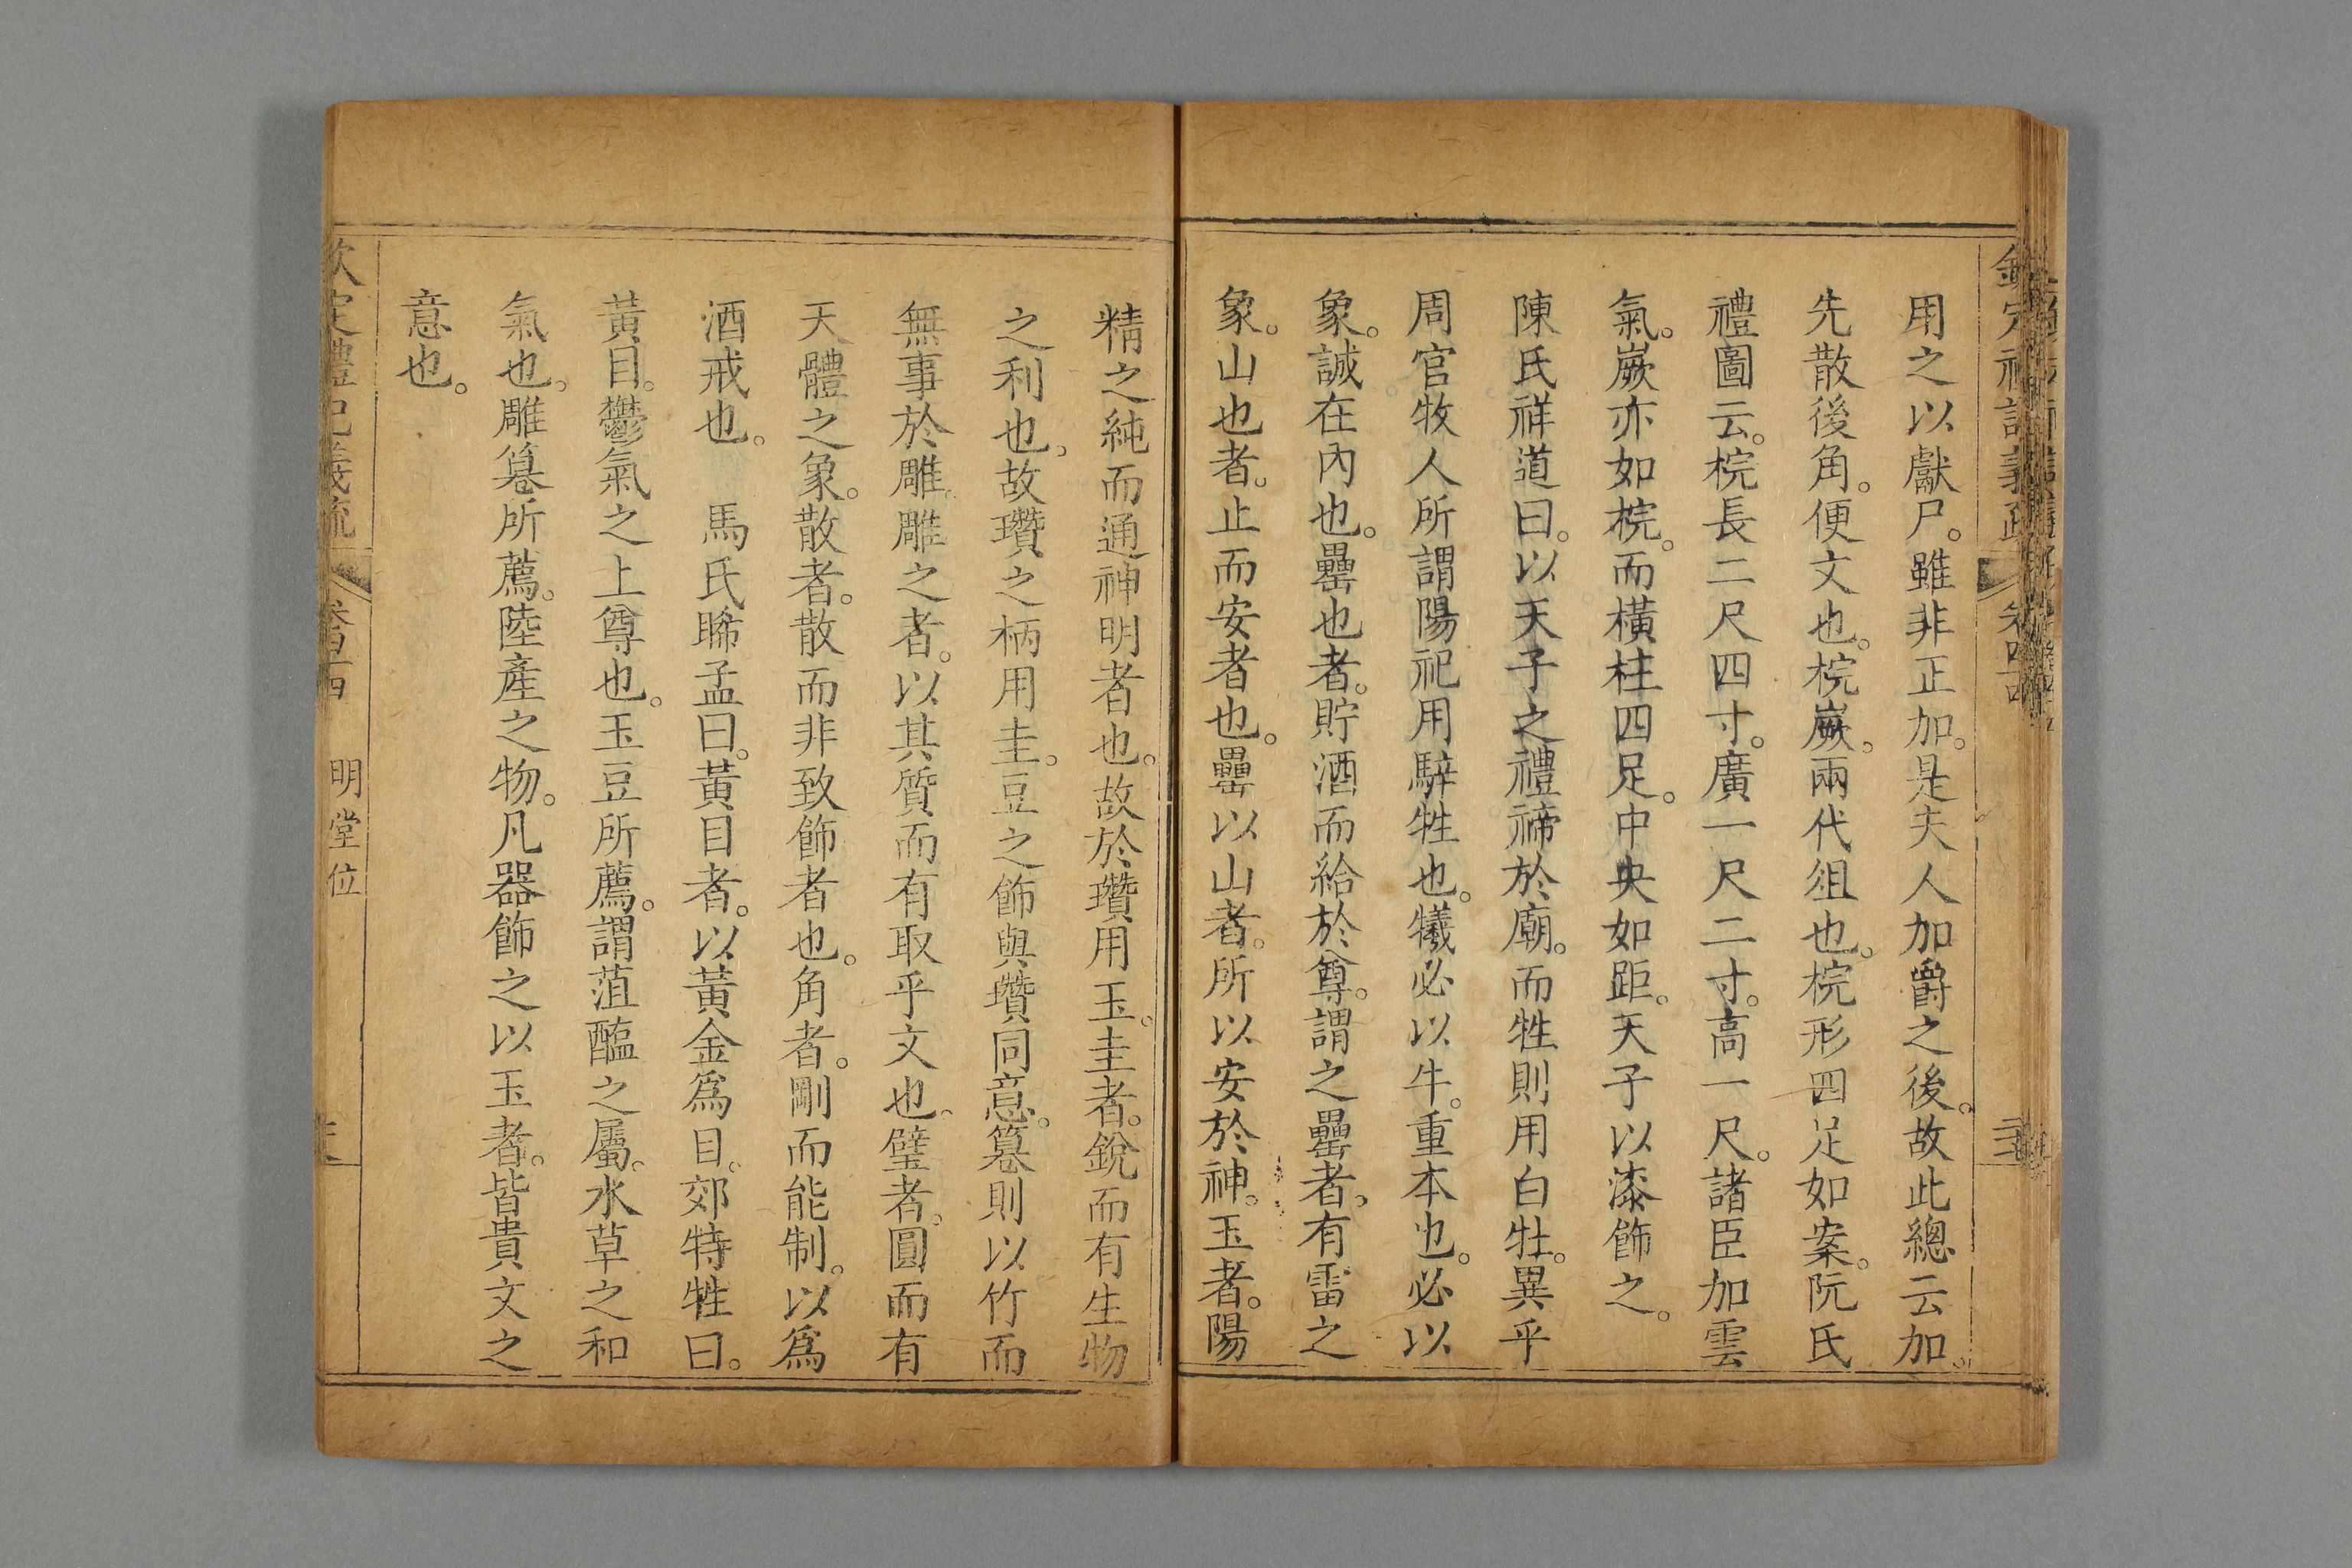 用之以獻尸。雖非正加。是夫人加爵之後。故此總云加。
先散後角。便文也。梡嶡。兩代俎也。梡形四足如案。阮氏
禮圖云。梡長二尺四寸。廣一尺二寸。高一尺。諸臣加雲
氣。嶡亦如梡。而橫柱四足。中央如距。天子以漆飾之。
陳氏祥道曰。以天子之禮禘於廟。而牲則用白牡。異乎
周官牧人所謂陽祀用騂牲也。犧必以牛。重本也。必以
象。誠在內也。罍也者。貯酒而給於尊。謂之罍者。有雷之
象。山也者。止而安者也。罍以山者。所以安於神。玉者。陽
精之純而通神明者也。故於瓚用玉。圭者。銳而有生物
之利也。故瓚之柄用圭。豆之飾與瓚同意。簋則以竹而
無事於雕。雕之者。以其質而有取乎文也。璧者。圓而有
天體之象。散者。散而非致飾者也。角者。剛而能制。以爲
酒戒也。 馬氏睎孟曰。黃目者。以黃金爲目。郊特牲曰。
黃目。鬱氣之上尊也。玉豆所薦。謂菹醢之屬。水草之和
氣也。雕簋所薦。陸產之物。凡器飾之以玉者。皆貴文之
意也。
欽定禮記義疏 卷四十四 明堂位